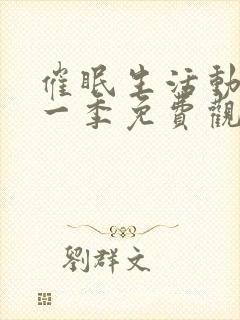 催眠生活動
一季免費觀
劉群文